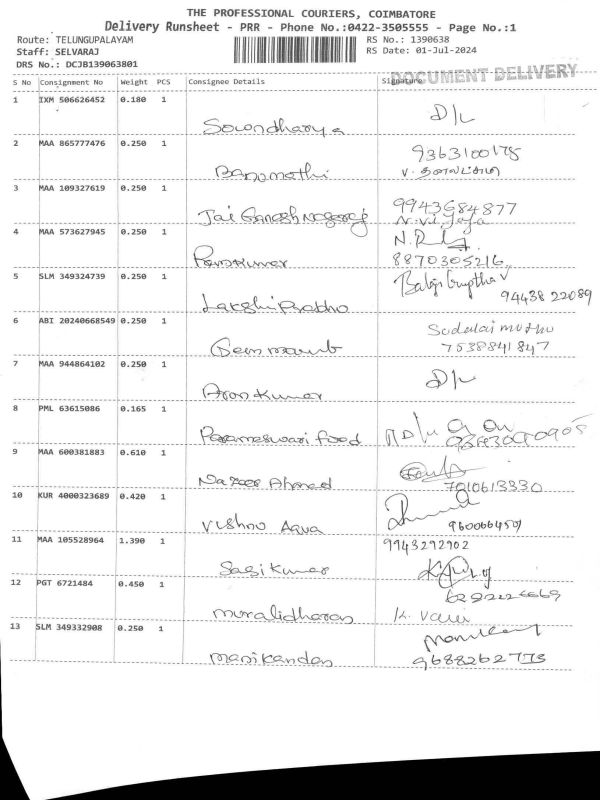 THE PROFESSIONAL COURIERS, COIMBATORE
Delivery Runsheet - PRR - Phone No.:0422-3505555 - Page No.:1
Route: TELUNGUPALAYAM RS No.: 1390638
Staff: SELVARAJ RS Date: 01-Jul-2024
DRS No.: DCJB139063801
DOCUMENT DELIVERY
S No Consignment No Weight PCS Consignee Details Signature
1 IXM 506626452 0.180 1
Sowndharya D/L
2 MAA 865777476 0.250 1
Banumathi 9363100178
3 MAA 109327619 0.250 1
Jai Ganesh Nagaraj 9943684877
4 MAA 573627945 0.250 1
Ramkumar 8870305216
5 SLM 349324739 0.250 1
Balaji Guptha V
Lakshi Prabhu 94438 22089
6 ABI 20240668549 0.250 1
Sudalai muthu
7538841847
7 MAA 944864102 0.250 1
Arunkumar D/L
8 PML 63615086 0.165 1
Parameswari food
9 MAA 600381883 0.610 1
Nazeer Ahmed 7010613330
10 KUR 4000323689 0.420 1
Vishnu Aqua
11 MAA 105528964 1.390 1
9943292902
Sasikumar
12 PGT 6721484 0.450 1
muralidharan
13 SLM 349332908 0.250 1
manikandan 9688262773